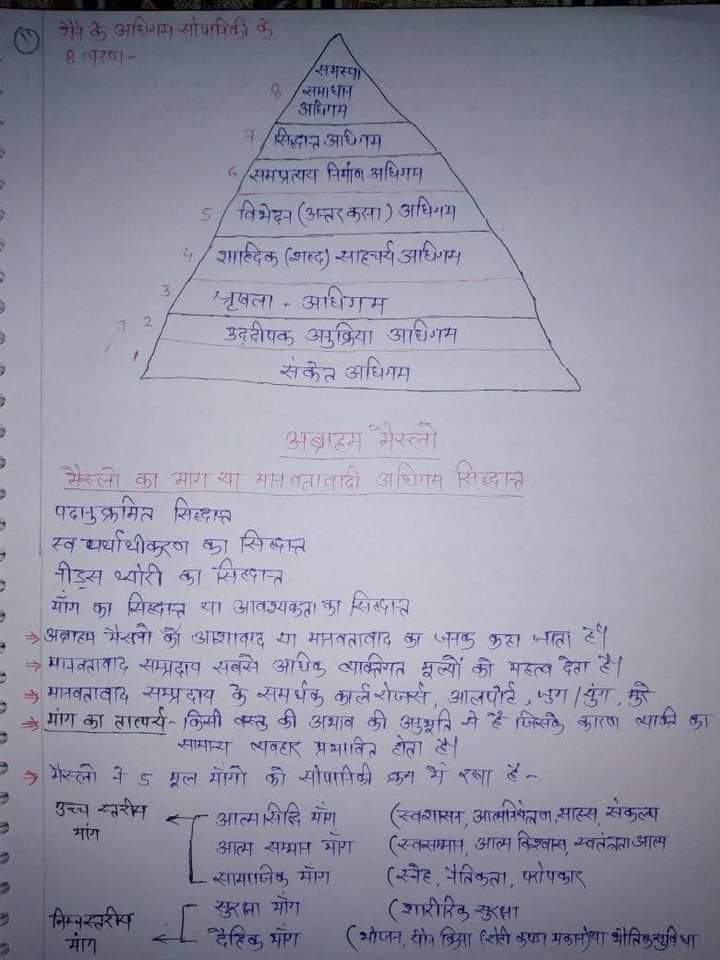 11
गैने के अधिगम सोपानिकी के
8 चरण-
8 समस्या
समाधान
अधिगम
7 सिद्धान्त अधिगम
6 समप्रत्यय निर्माण अधिगम
5 विभेदन (अन्तरकसा) अधिगम
4 शाब्दिक (शब्द) साहचर्य अधिगम
3 श्रृखला - अधिगम
2 उद्दीपक अनुक्रिया अधिगम
1 संकेत अधिगम
अब्राहम मैस्लो
मैस्लो का मांग या मानवतावादी अधिगम सिद्धान्त
पदानुक्रमित सिद्धान्त
स्व यर्थाथीकरण का सिद्धान्त
नीड्स थ्योरी का सिद्धान्त
माँग का सिद्धान्त या आवश्यकता का सिद्धान्त
⇒ अब्राहम मैस्लो को आशावाद या मानवतावाद का जनक कहा जाता है।
⇒ मानवतावाद सम्प्रदाय सबसे अधिक व्यक्तिगत मूल्यों को महत्व देता है।
⇒ मानवतावाद सम्प्रदाय के समर्थक कार्ल रोजर्स, आलपोर्ट, जुग / युंग, मुरे
⇒ मांग का तात्पर्य - किसी वस्तु की अभाव की अनुभूति से है जिसके कारण व्यक्ति का
सामान्य व्यवहार प्रभावित होता है।
⇒ मैस्लो ने 5 मूल माँगो को सोपानिकी क्रम में रखा है -
उच्च स्तरीय मांग
आत्मसिद्धि माँग (स्वशासन, आत्मनियंत्रण, साहस, संकल्प
आत्म सम्मान माँग (स्वसम्मान, आत्म विश्वास, स्वतंत्रता आत्म
सामाजिक माँग (स्नेह, नैतिकता, परोपकार
निम्नस्तरीय मांग
सुरक्षा माँग (शारीरिक सुरक्षा
दैहिक माँग (भोजन, यौन क्रिया (रोटी कपडा मकान) तथा भौतिक सुविधा